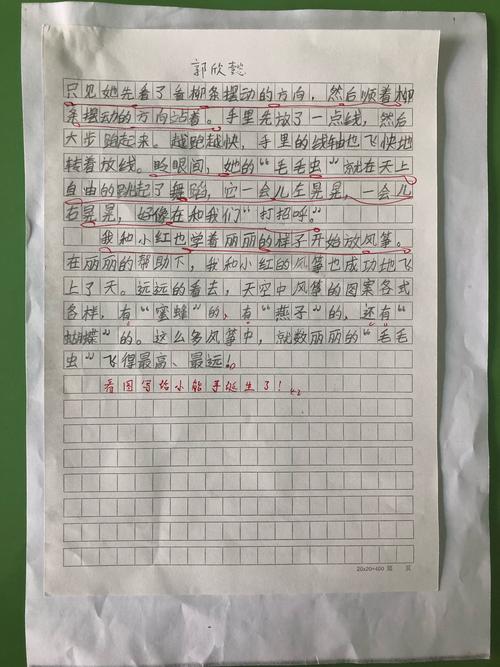 郭欣懿
只见她先看了看柳条摆动的方向，然后顺着柳
条摆动的方向站着。手里先放了一点线，然后
大步跑起来。越跑越快，手里的线轴也飞快地
转着放线。眨眼间，她的“毛毛虫”就在天上
自由的跳起了舞蹈，它一会儿左晃晃，一会儿
右晃晃，好像在和我们“打招呼。”
我和小红也学着丽丽的样子开始放风筝。
在丽丽的帮助下，我和小红的风筝也成功地飞
上了天。远远的看去，天空中风筝的图案各式
各样，有“蜜蜂”的，有“燕子”的，还有“
蝴蝶”的。这么多风筝中，就数丽丽的“毛毛
虫”飞得最高、最远！
看图写话小能手诞生了！
20×20=400 页